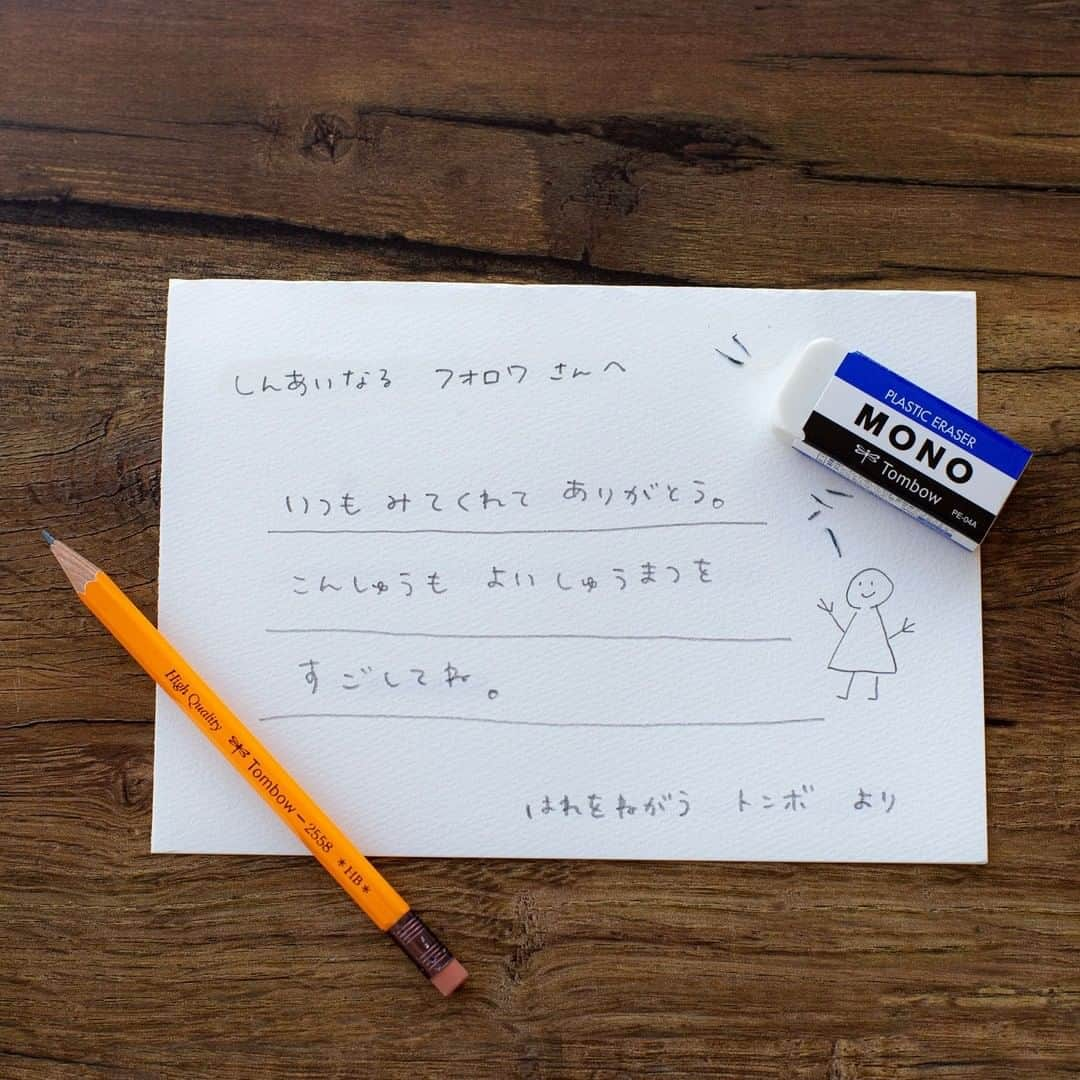 しんあいなる フオロワ さんへ
いつも みてくれて ありがとう。
こんしゅうも よいしゅうまつを
すごしてね。
はれをねがう トンボ より
PLASTIC ERASER
MONO
Tombow
PE-04A
High Quality Tombow-2558 *HB*